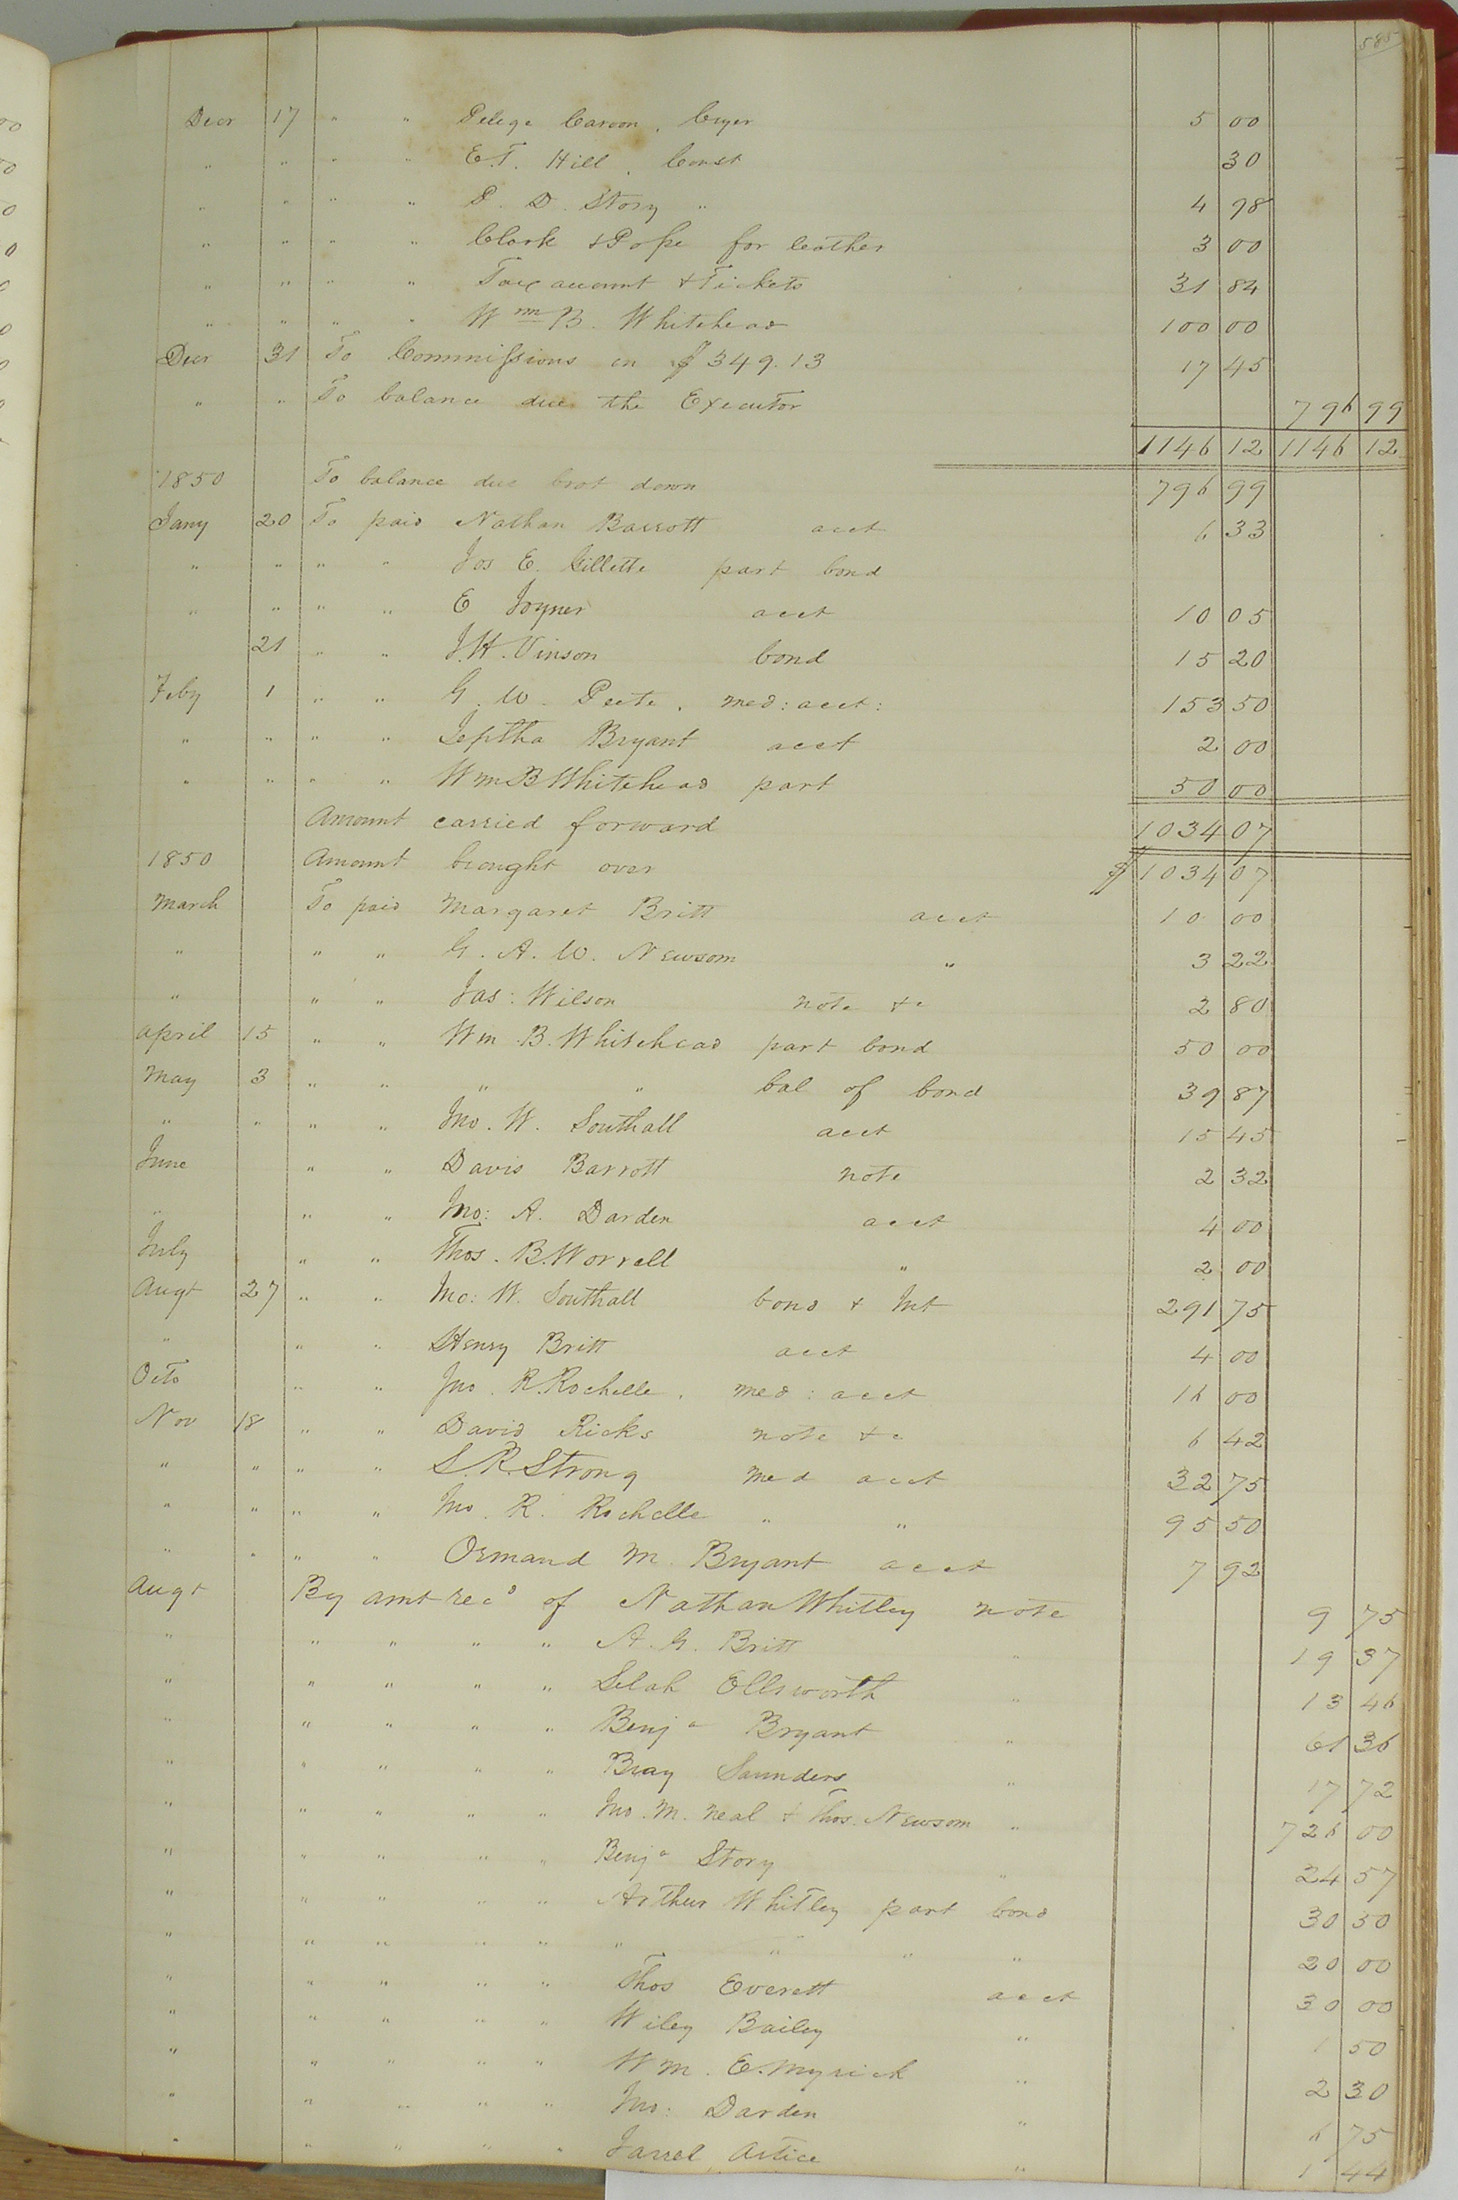 585
Decr 17 " " Pelege Carson, Cryer 5 00
" " " " E. T. Hill, Const 30
" " " " P. D. Story " 4 98
" " " " Clark & Pope for leather 3 00
" " " " Tax account & Tickets 31 84
" " " " Wm B. Whitehead 100 00
Decr 31 To Commissions on $349.13 17 45
" " To balance due the Executor 796 99
1146 12 1146 12
1850 To balance due brot down 796 99
Jany 20 To paid Nathan Barrott acct 6 33
" " " " Jos E. Gillette part bond
" " " " E Joyner acct 10 05
21 " " J. H. Vinson bond 15 20
Feby 1 " " G. W. Peete, med: acct: 153 50
" " " " Jeptha Bryant acct 2 00
" " " " Wm B Whitehead part 50 00
Amount carried forward 1034 07
1850 Amount brought over $ 1034 07
March To paid Margaret Britt acct 10 00
" " " G. A. W. Newsom " 3 22
" " " Jas: Wilson note &c 2 80
April 15 " " Wm. B. Whitehead part bond 50 00
May 3 " " " " bal of bond 39 87
" " " " Jno. W. Southall acct 15 45
June " " Davis Barrott note 2 32
" " " Jno: A. Darden acct 4 00
July " " Thos. B. Worrell " 2 00
Augt 27 " " Jno: W. Southall bond & Int 291 75
" " " Henry Britt acct 4 00
Octo " " Jno. R. Rochelle, med: acct 16 00
Nov 18 " " David Ricks note &c 6 42
" " " " S. R. Strong med acct 32 75
" " " " Jno. R. Rochelle " " 95 50
" " " " Ormand M. Bryant acct 7 92
Augt By amt recd of Nathan Whitley note 9 75
" " " " " A. G. Britt " 19 37
" " " " " Selah Ellsworth " 13 46
" " " " " Benja Bryant " 61 36
" " " " " Bray Saunders " 17 72
" " " " " Jno. M. Neal & Thos. Newsom " 726 00
" " " " " Benja Story " 24 57
" " " " " Arthur Whitley part bond 30 50
" " " " " " " " " 20 00
" " " " " Thos Everett acct 30 00
" " " " " Wiley Bailey " 1 50
" " " " " Wm. E. Myrick " 2 30
" " " " " Jno: Darden " 6 75
" " " " " Jarrel Artice " 1 44